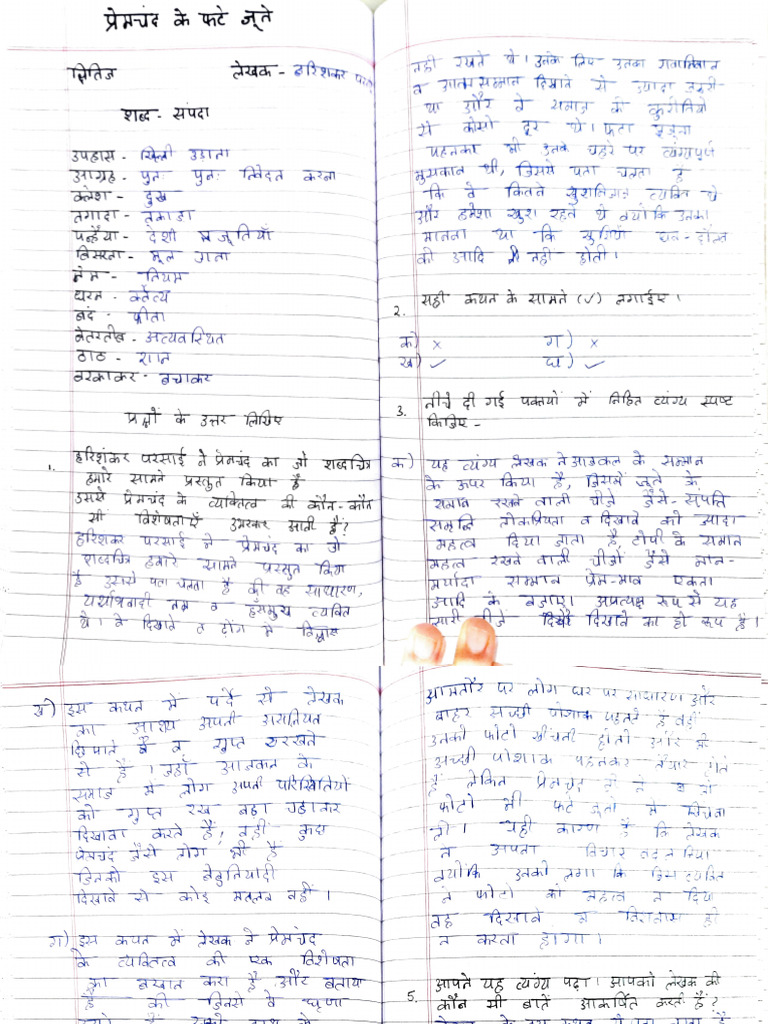 प्रेमचंद के फटे जूते
क्षितिज लेखक - हरिशंकर
शब्द - संपदा
उपहास - खिल्ली उड़ाना
आग्रह - पुनः पुनः निवेदन करना
क्लेश - दुख
तगादा - तकाज़ा
पन्हैया - देशी जूतियाँ
बिसरना - भूल जाना
नेम - नियम
धरम - कर्तव्य
बंद - फीता
बेतरतीब - अव्यवस्थित
ठाठ - शान
बरकाकर - बचाकर
प्रश्नों के उत्तर लिखिए
1. हरिशंकर परसाई ने प्रेमचंद का जो शब्दचित्र
हमारे सामने प्रस्तुत किया है
उससे प्रेमचंद के व्यक्तित्व की कौन-कौन
सी विशेषताएँ उभरकर आती हैं?
हरिशंकर परसाई ने प्रेमचंद का जो
शब्दचित्र हमारे सामने प्रस्तुत किया
है उससे पता चलता है की वह साधारण,
यर्थाथवादी नम्र व हँसमुख व्यक्ति
थे। वे दिखावे व ढोंग में विश्वास
नही रखते थे। उनके लिए उनका
व आत्मसम्मान दिखावे से ज्यादा जरूरी
था और वे समाज की कुरीतियो
से कोसो दूर थे। फटा जूता
पहनकर भी उनके चहरे पर व्यंग्यपूर्ण
मुस्कान थी, जिससे पता चलता है
कि वे कितने खुशमिजाज व्यक्ति थे
और हमेशा खुश रहते थे क्योंकि उनका
मानना था कि खुशियाँ धन-दौलत
की आदि नही होती।
2. सही कथन के सामने (✓) लगाईए।
क) × ग) ×
ख) ✓ घ) ✓
3. नीचे दी गई पंक्तियों में निहित व्यंग्य स्पष्ट
किजिए -
क) यह व्यंग्य लेखक ने आजकल के सम्मान
के ऊपर किया है, जिसमें जूते के
समान रखने वाली चीजे जैसे - संपति
समृति लोकप्रियता व दिखावे को ज्यादा
महत्व दिया जाता है, टोपी के समान
महत्व रखने वाली चीजों जैसे मान-
मर्यादा सम्मान प्रेम-भाव एकता
आदि के बजाए। अप्रत्यक्ष रूप से यह
सारी चीजें दिखावे का ही रूप है।
ख) इस कथन में पर्दे से लेखक
का आश्य अपनी
छिपाने व गुप्त रखने
से है। जहाँ आजकल के
समाज में लोग अपनी परिस्थितियो
को गुप्त रख बढ़ा चढ़ाकर
दिखावा करते हैं, वहीं कुछ
प्रेमचंद जैसे लोग भी हैं
जिनको इस बेबुनियादी
दिखावे से कोई मतलब नहीं।
ग) इस कथन में लेखक ने प्रेमचंद
के व्यक्तित्व की एक विशेषता
का बखान करा है और बताया
है की जिनसे वे घृणा
आमतौर पर लोग घर पर साधारण और
बाहर अच्छी पोशाक पहनते है वहीं
उनकी फोटो खींचनी होती और भी
अच्छी पोशाक पहनकर तैयार होते
हैं लेकिन प्रेमचंद जी ने
फोटो भी फटे जूतो में खिंचवा
ली। यही कारण है कि लेखक
ने अपना विचार बदल लिया
क्योंकि उनको लगा कि जिस व्यक्ति
ने फोटो को महत्व न दिया
वह दिखावे में विश्वास ही
न करता होगा।
5. आपने यह व्यंग्य पढ़ा। आपको लेखक की
कौन सी बातें आकर्षित करती है?